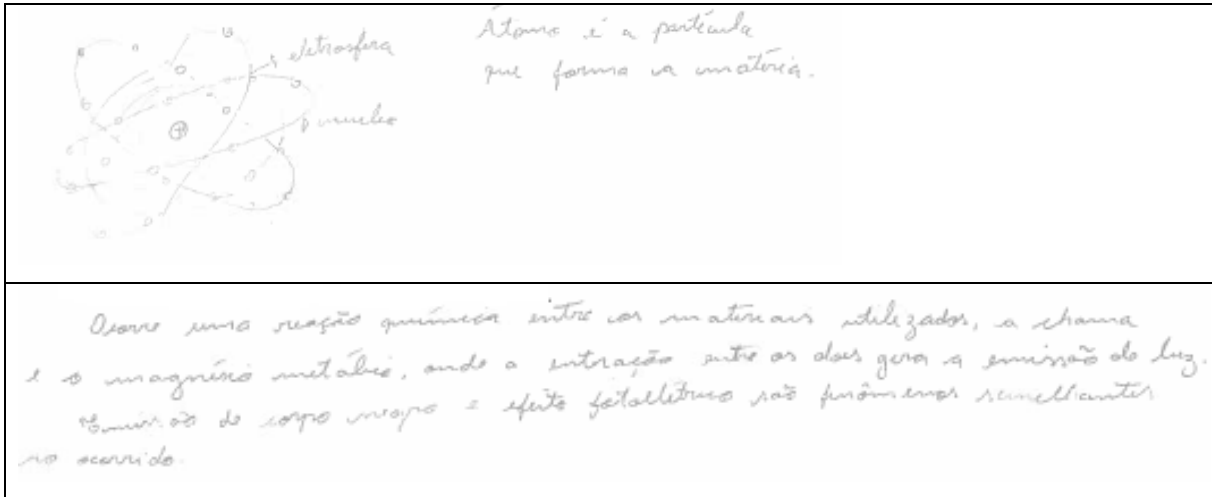 eletrosfera
núcleo
+
Átomo é a partícula
que forma a matéria.
Ocorre uma reação química entre os materiais utilizados, a chama
e o magnésio metálico, onde a interação entre os dois gera a emissão de luz.
Emissão de corpo negro e efeito fotoelétrico são fenômenos semelhantes
ao ocorrido.